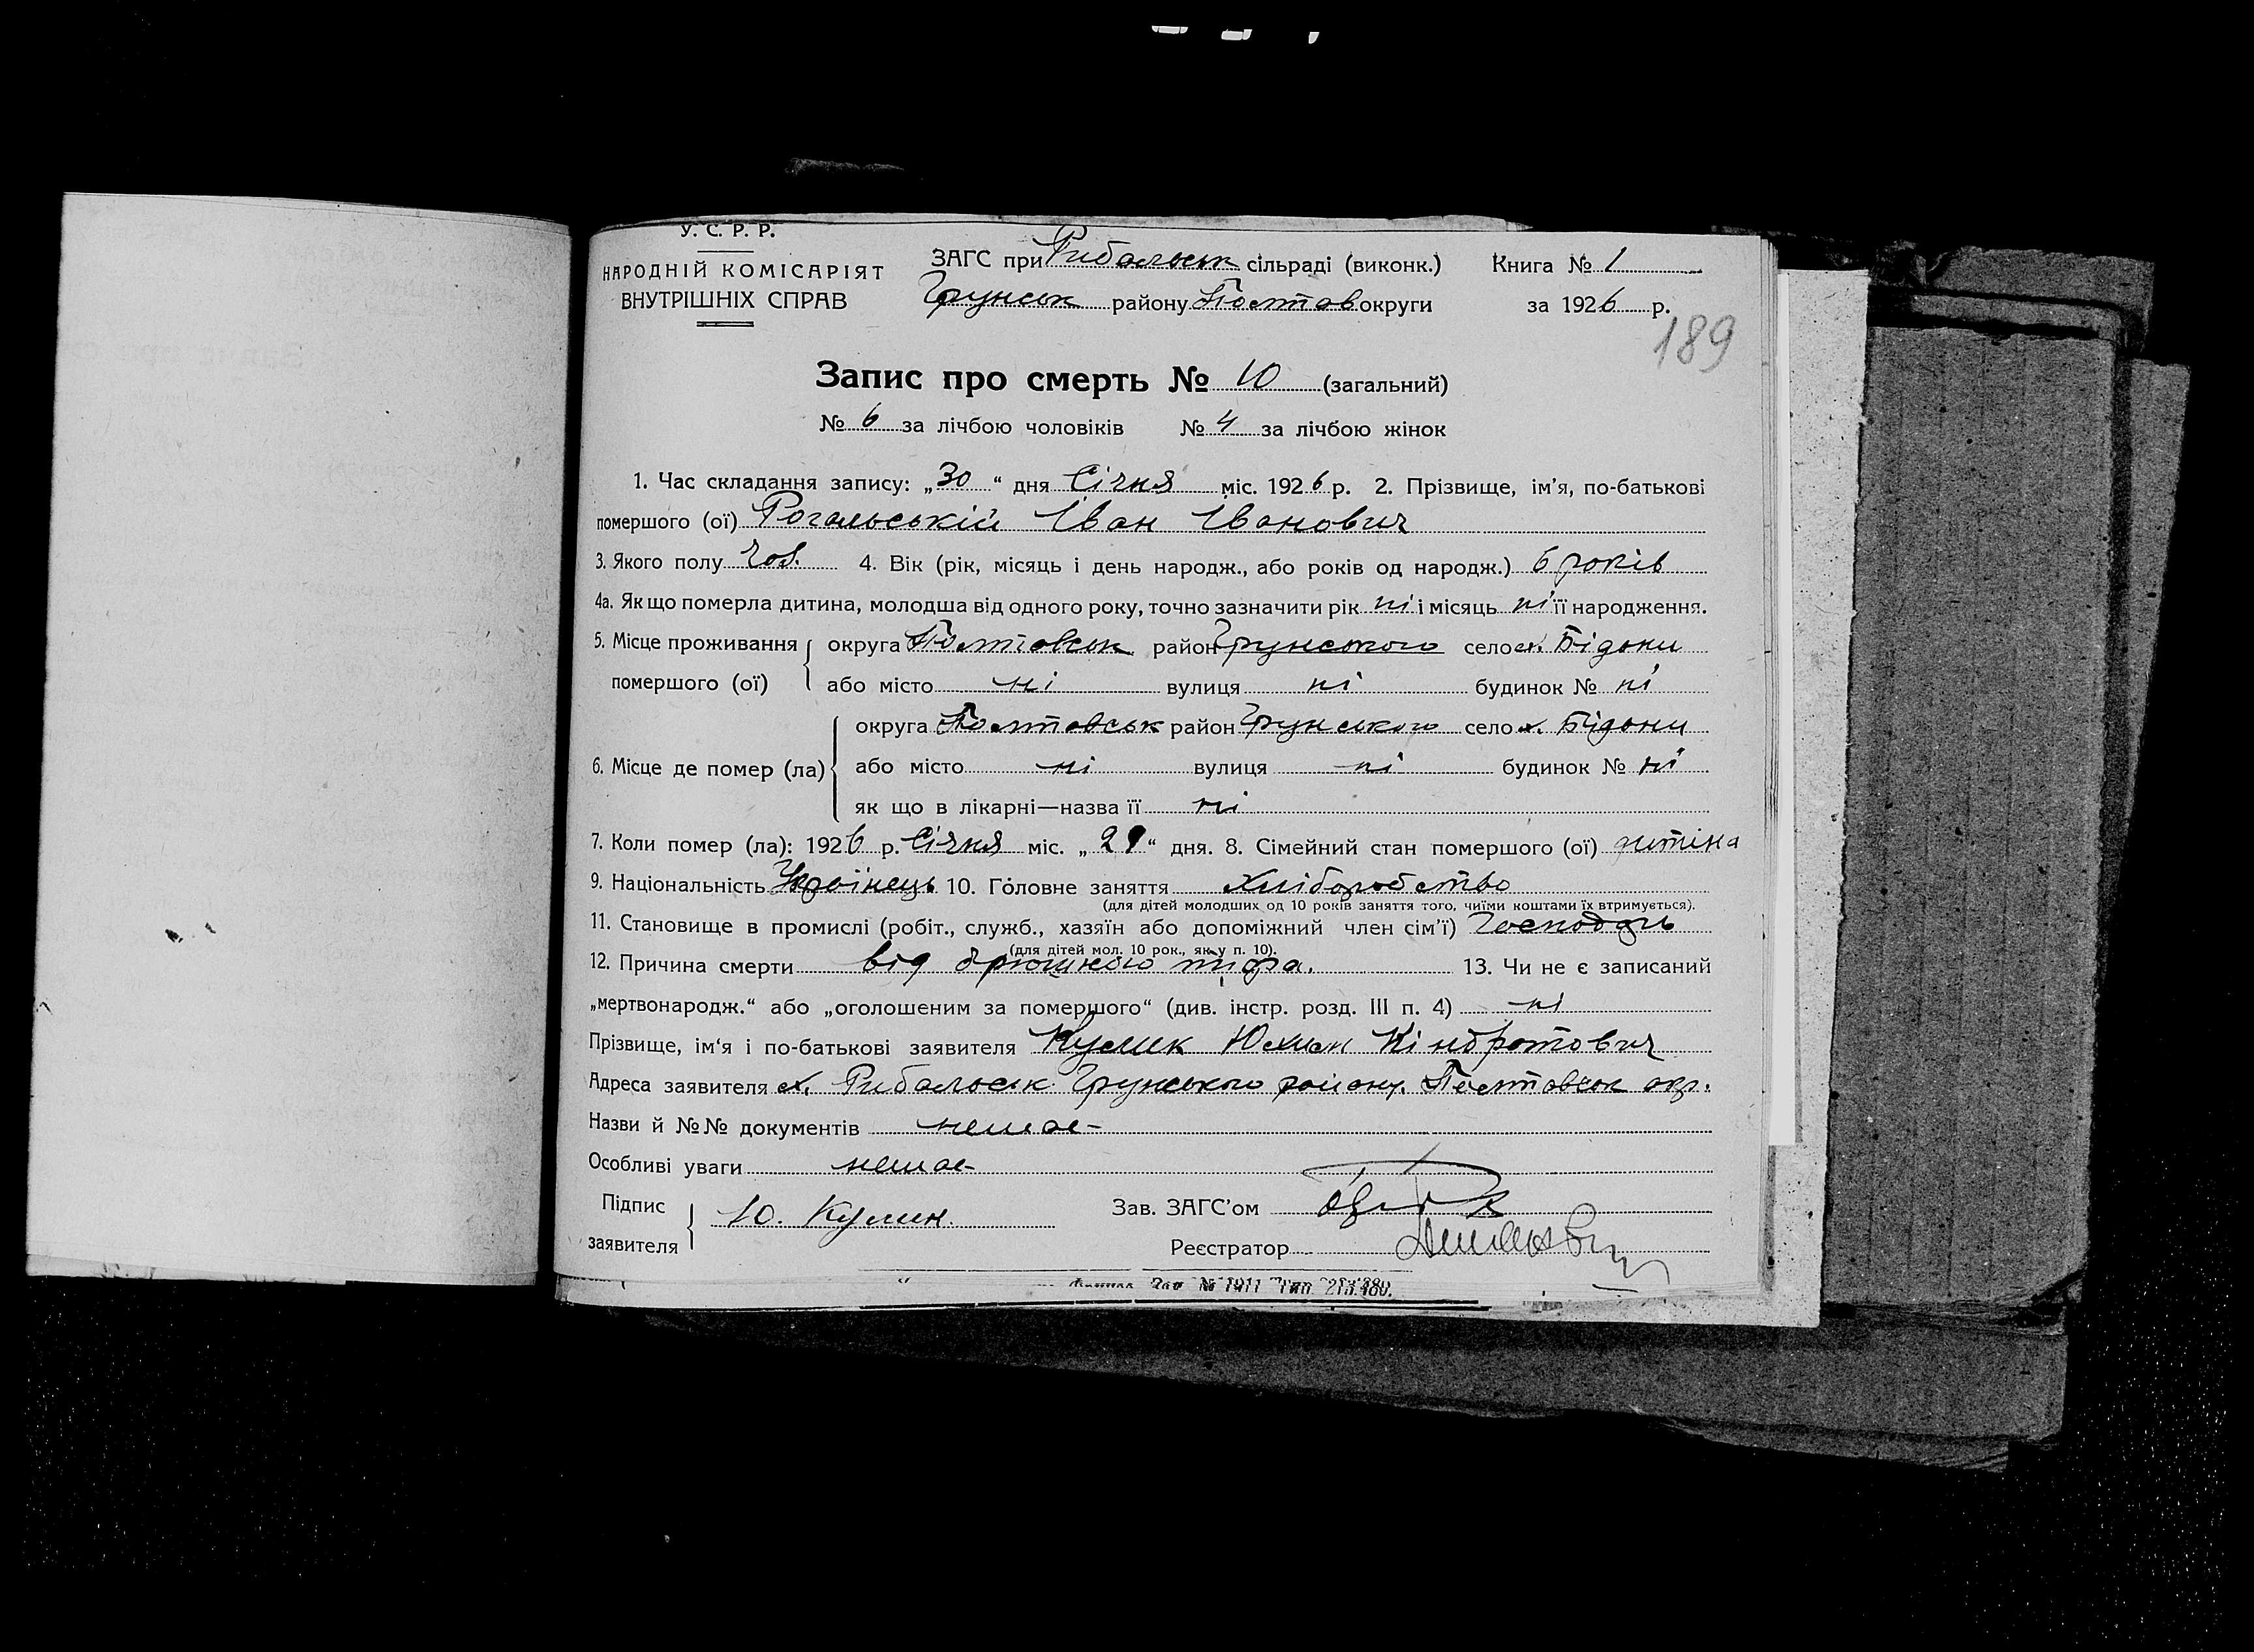 У. С. Р. Р.
НАРОДНІЙ КОМІСАРІЯТ
ВНУТРІШНІХ СПРАВ
ЗАГС при Рибальськ сільраді (виконк.) Книга № 1
Грунськ району Полтав округи за 1926 р.
189
Запис про смерть № 10 (загальний)
№ 6 за лічбою чоловіків № 4 за лічбою жінок
1. Час складання запису: „30“ дня Січня міс. 1926 р. 2. Прізвище, ім’я, по-батькові
помершого (ої) Рогальській Іван Іванович
3. Якого полу чов. 4. Вік (рік, місяць і день народж., або років од народж.) 6 років
4а. Як що померла дитина, молодша від одного року, точно зазначити рік ні і місяць ні її народження.
5. Місце проживання помершого (ої) округа Полтавськ район Грунського село х. Бідони
або місто ні вулиця ні будинок № ні
6. Місце де помер (ла) округа Полтавськ район Грунського село х. Бідони
або місто ні вулиця ні будинок № ні
як що в лікарні—назва її ні
7. Коли помер (ла): 1926 р. Січня міс. „29“ дня. 8. Сімейний стан помершого (ої) дитина
9. Національність Українець 10. Головне заняття Хліборобство
(для дітей молодших од 10 років заняття того, чиїми коштами їх втримується).
11. Становище в промислі (робіт., служб., хазяїн або допоміжний член сім’ї) Господарь
(для дітей мол. 10 рок., як у п. 10).
12. Причина смерти від брюшного тифа. 13. Чи не є записаний
„мертвонародж.“ або „оголошеним за помершого“ (див. інстр. розд. III п. 4) ні
Прізвище, ім‘я і по-батькові заявителя Кулик Юхим Кіндратович
Адреса заявителя х. Рибальськ Грунського району, Полтавськ окр.
Назви й №№ документів немає
Особливі уваги немає
Підпис заявителя Ю. Кулик. Зав. ЗАГС’ом
Реєстратор
Зак. № 1911 Тир. 213.480.